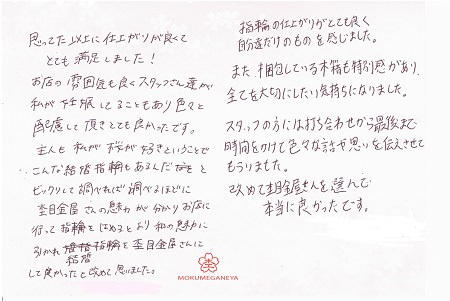 思ってた以上に仕上がりが良くて
とても満足しました！
お店の雰囲気も良くスタッフさん達が
私が妊娠してることもあり色々と
配慮して頂きとても良かったです。
主人も私が桜が好きということで
こんな結婚指輪もあるんだなと
ビックリして調べれば調べるほどに
杢目金屋さんの魅力が分かりお店に
行って指輪をはめるとより和の魅力に
引かれ結婚指輪を杢目金屋さんに
して良かったと改めて思いました。
指輪の仕上がりがとても良く
自分達だけのものを感じました。
また梱包している木箱も特別感があり、
全てを大切にしたい気持ちになりました。
スタッフの方には打ち合わせから最後まで
時間をかけて色々な話や思いを伝えさせて
もらいました。
改めて杢目金屋さんを選んで
本当に良かったです。
MOKUMEGANEYA